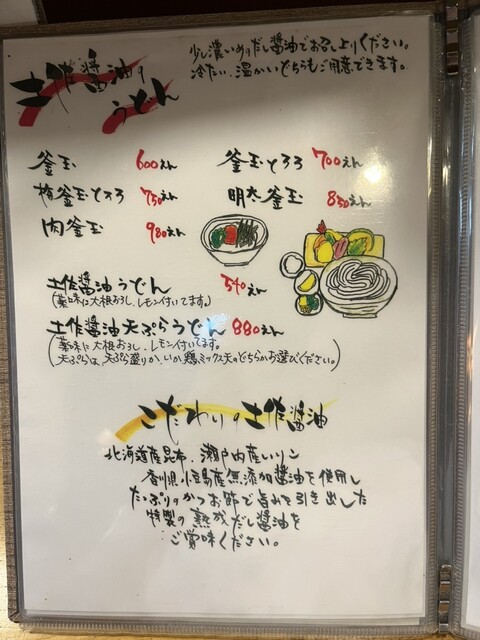 土佐醤油のうどん
少し濃いめのだし醤油でお召し上りください。
冷たい、温かいどちらもご用意できます。
釜玉 600えん
釜玉とろろ 700えん
梅釜玉とろろ 750えん
明太釜玉 850えん
肉釜玉 980えん
土佐醤油うどん 540えん
(薬味に大根おろし、レモン付いてます。)
土佐醤油天ぷらうどん 880えん
(薬味に大根おろし、レモン付いてます。
天ぷらは、天ぷら盛りか、いか鶏ミックス天のどちらかお選びください。)
こだわりの土佐醤油
北海道産昆布、瀬戸内産いりこ
香川県小豆島産無添加醤油を使用し
たっぷりのかつお節で旨みを引き出した
特製の熟成だし醤油を
ご賞味ください。